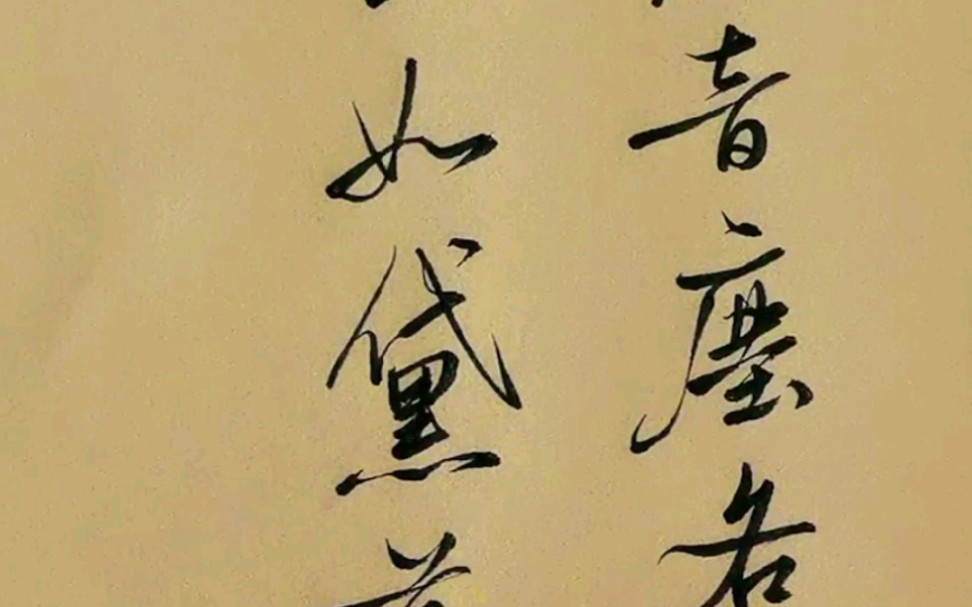 音塵各
如黛